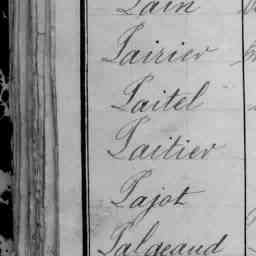 Pain
Pairier
Paitel
Paitier
Pajot
Palgeaud